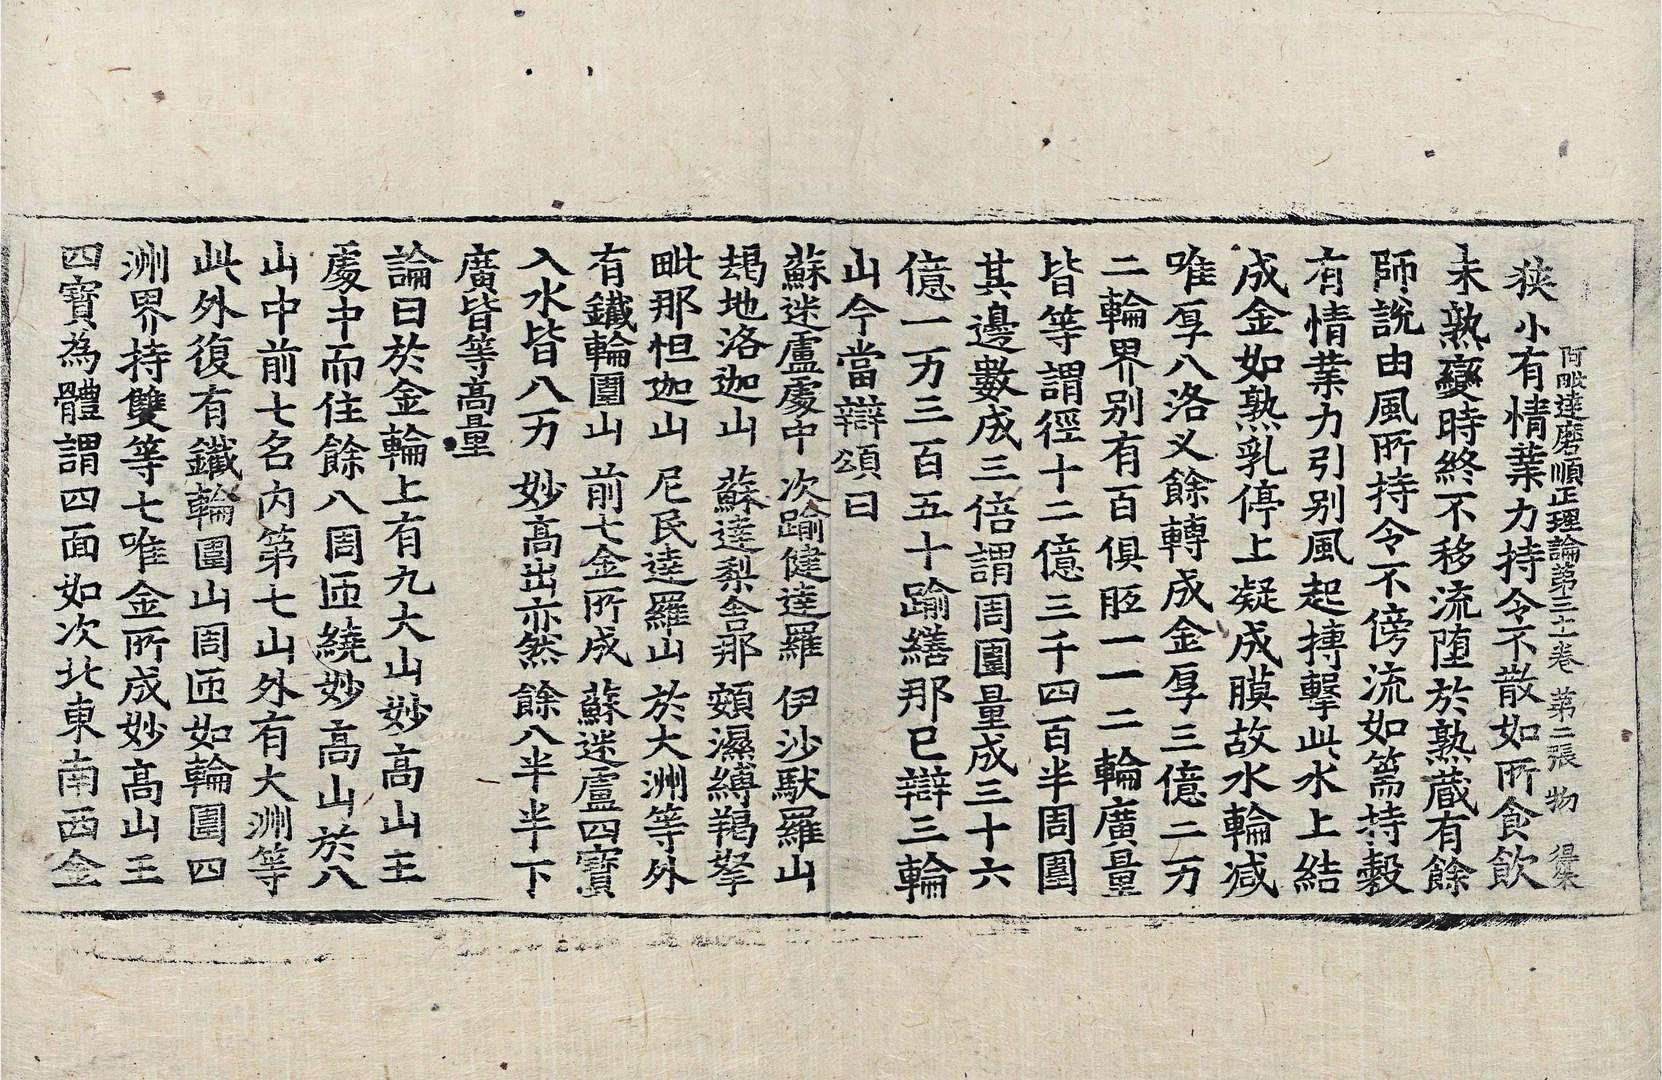 阿毗達磨順正理論第三十一卷 第二張 物 得朱
狹小有情業力持令不散如所食飲
未熟變時終不移流墮於熟藏有餘
師說由風所持令不傍流如篅持穀
有情業力引別風起摶擊此水上結
成金如熟乳停上凝成膜故水輪减
唯厚八洛叉餘轉成金厚三億二万
二輪界別有百俱胝一一二輪廣量
皆等謂徑十二億三千四百半周圍
其邊數成三倍謂周圍量成三十六
億一万三百五十踰繕那已辯三輪
山今當辯頌曰
蘇迷盧處中 次踰健達羅 伊沙馱羅山
朅地洛迦山 蘇達梨舍那 頞濕縛羯拏
毗那怛迦山 尼民達羅山 於大洲等外
有鐵輪圍山 前七金所成 蘇迷盧四寶
入水皆八万 妙高出亦然 餘八半半下
廣皆等高量
論曰於金輪上有九大山妙高山王
處中而住餘八周匝繞妙高山於八
山中前七名内第七山外有大洲等
此外復有鐵輪圍山周匝如輪圍四
洲界持雙等七唯金所成妙高山王
四寶為體謂四面如次北東南西金